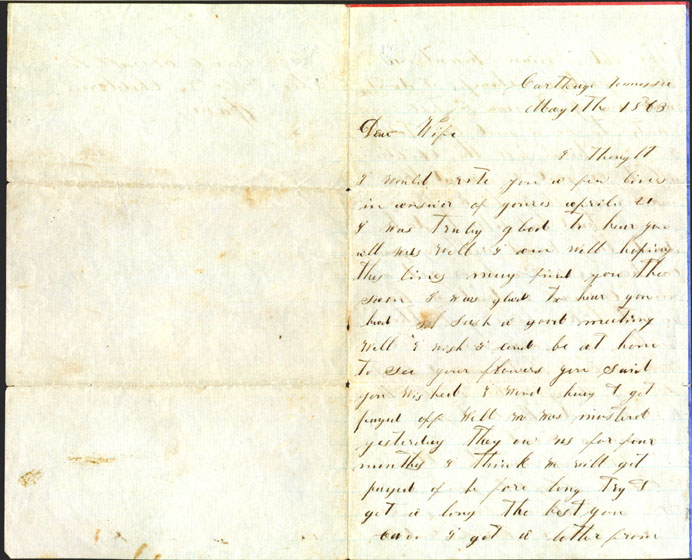 Carthage Tennessee
May 1 the 1863
Dear Wife
I thought
I would rite you a few lines
in answer of youres aprile 21
I was truly glad to hear you
all was well I am well hoping
thes lines may find you the
same I was glad to hear you
had such a good meeting
Well I wish I could be at home
to see your flowers you said
you wished I
payed off Well we was mustred
yesterday they ow us for four
months I think we will git
payed of be fore long try &
get a long the best you
can I got a letter from